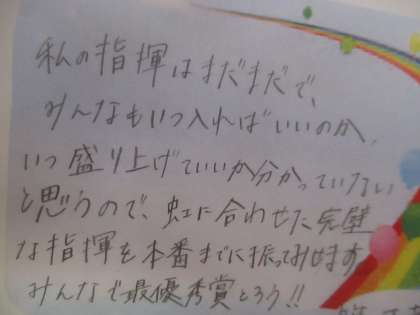 私の指揮はまだまだで、
みんなもいつ入ればいいのか、
いつ盛り上げていいか分かっていない
と思うので、虹に合わせた完璧
な指揮を本番までに振ってみせます
みんなで最優秀賞とろう!!